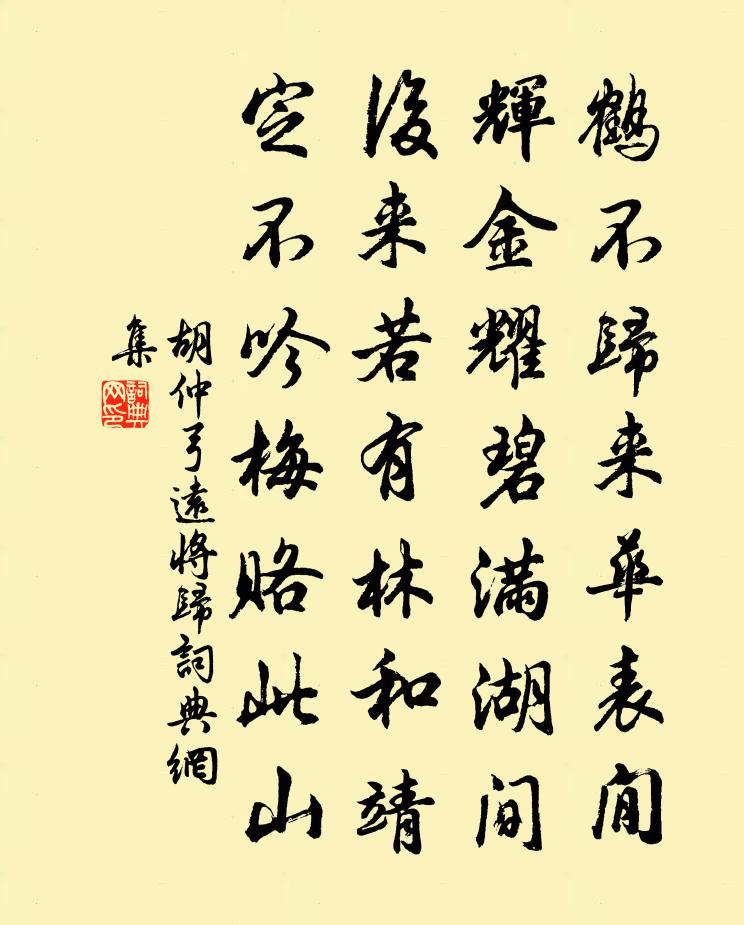 鶴不歸来華表閒
輝金耀碧滿湖間
後来若有林和靖
定不吟梅賂此山
胡仲弓遠將歸詞典網
集
詞典網印